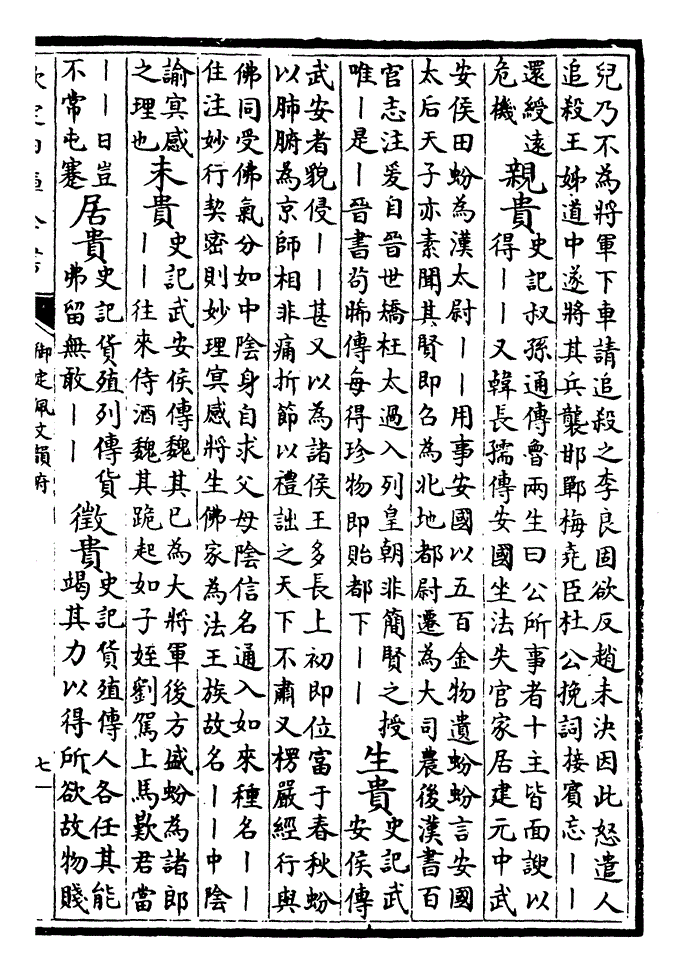 兒乃不為將軍下車請追殺之李良固欲反趙未決因此怒遣人
追殺王姊道中遂將其兵襲邯鄲梅堯臣杜公挽詞接賓忘――
還綬遠
危機
親貴
史記叔孫通傳魯兩生曰公所事者十主皆面諛以
得――又韓長孺傳安國坐法失官家居建元中武
安侯田蚡為漢太尉――用事安國以五百金物遺蚡蚡言安國
太后天子亦素聞其賢即召為北地都尉遷為大司農後漢書百
官志注爰自晉世矯枉太過入列皇朝非簡賢之授
唯―是―晉書苟晞傳每得珍物即貽都下――
生貴
史記武
安侯傳
武安者貌侵――甚又以為諸侯王多長上初即位富于春秋蚡
以肺腑為京師相非痛折節以禮詘之天下不肅又楞嚴經行與
佛同受佛氣分如中陰身自求父母陰信名通入如來種名――
住注妙行契密則妙理冥感將生佛家為法王族故名――中陰
諭冥感
之理也
未貴
史記武安侯傳魏其已為大將軍後方盛蚡為諸郎
――往來侍酒魏其跪起如子姪劉駕上馬歎君當
――日豈
不常屯蹇
居貴
史記貨殖列傳貨
弗留無敢――
徵貴
史記貨殖傳人各任其能
竭其力以得所欲故物賤
御定佩文韻府
七